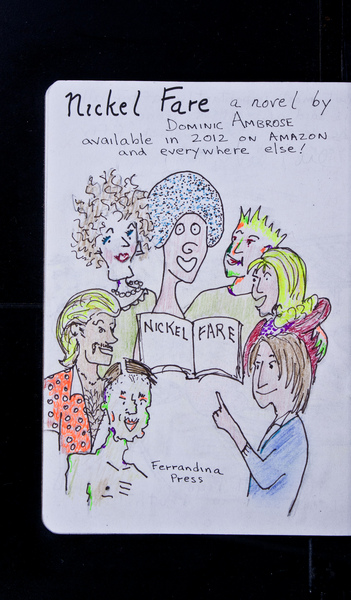 Nickel Fare a novel by
DOMINIC AMBROSE
available in 2012 ON AMAZON
and everywhere else!
NICKEL FARE
Ferrandina
Press